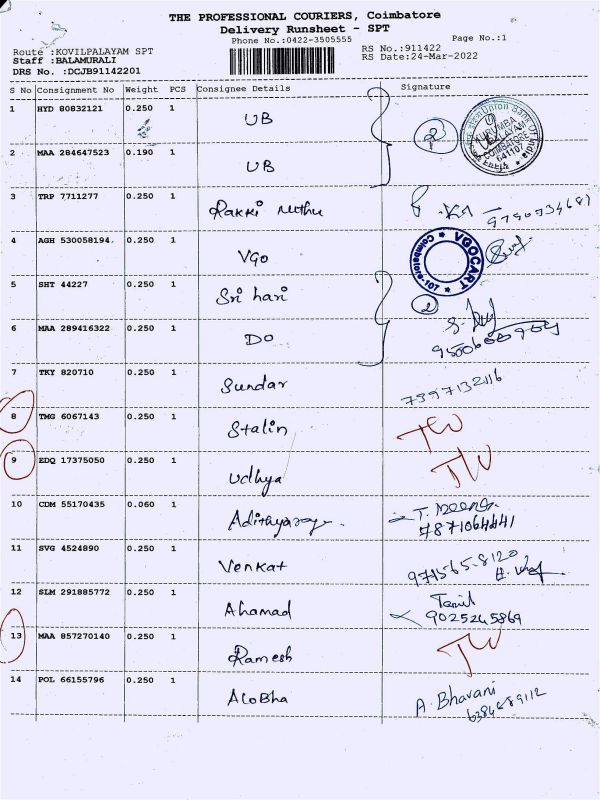 THE PROFESSIONAL COURIERS, Coimbatore
Delivery Runsheet - SPT
Phone No.:0422-3505555
Page No.:1
Route :KOVILPALAYAM SPT
RS No.:911422
Staff :BALAMURALI
RS Date:24-Mar-2022
DRS No. :DCJB91142201
S No Consignment No Weight PCS Consignee Details Signature
1 HYD 80832121 0.250 1 UB
2 Union Bank Of India
KURUMBA
PALAYAM
COIMBATORE
641107
2 MAA 284647523 0.190 1 UB
3 TRP 7711277 0.250 1 Rakki Muthu
9790734681
4 AGH 530058194. 0.250 1 VGO
VGOCART
Coimbatore-107
5 SHT 44227 0.250 1 Sri hari 2
6 MAA 289416322 0.250 1 DO
7 TKY 820710 0.250 1 Sundar 7397132116
8 TMG 6067143 0.250 1 Stalin TW
9 EDQ 17375050 0.250 1 Udhya TW
10 CDM 55170435 0.060 1 T. Meena
7871064441
11 SVG 4524890 0.250 1 Venkat 97565-8120
12 SLM 291885772 0.250 1 Ahamad Tamil
9025245869
13 MAA 857270140 0.250 1 Ramesh TW
14 POL 66155796 0.250 1 AloBha A. Bhavani